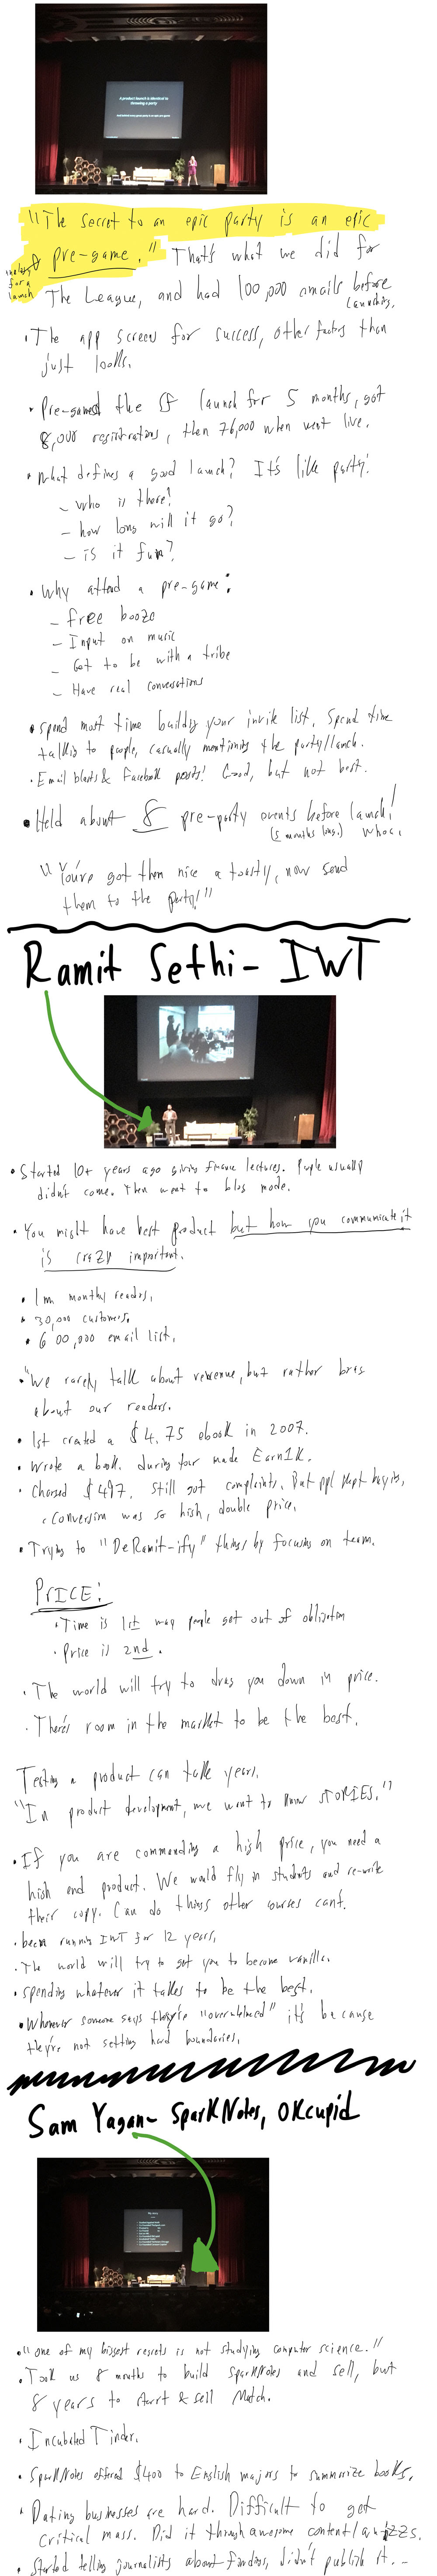 A product launch is identical to
throwing a party
"The secret to an epic party is an epic
pre-game." That's what we did for
for a
launch
The League, and had 100,000 emails before
launching.
• The app screens for success, other factors than
just looks.
• Pre-gamed the SF launch for 5 months, got
8,000 registrations, then 76,000 when went live.
• What defines a good launch? It's like party!
- who is there?
- how long will it go?
- is it fun?
• Why attend a pre-game:
- Free booze
- Input on music
- Get to be with a tribe
- Have real conversations
• Spend most time building your invite list. Spend time
talking to people, casually mentioning the party/launch.
• Email blasts & Facebook posts! Good, but not best.
• Held about 8 pre-party events before launch!
(5 months long.) Whoa.
"You've got them nice & toasty, now send
them to the party!"
Ramit Sethi - IWT
• Started 10+ years ago giving finance lectures. People usually
didn't come. Then went to blog mode.
• You might have best product but how you communicate it
is crazy important.
• 1mm monthly readers.
• 30,000 customers.
• 600,000 email list.
• "We rarely talk about revenue, but rather brag
about our readers.
• 1st created a $4.75 ebook in 2007.
• Wrote a book. During tour made Earn1K.
• Charged $497. Still got complaints. But ppl kept buying.
• Conversion was so high, double price.
• Trying to "DeRamit-ify" things by focusing on team.
PRICE:
• Time is 1st way people get out of obligation
• Price is 2nd.
• The world will try to drag you down in price.
• There's room in the market to be the best.
Testing a product can take years.
"In product development, we want to know STORIES."
• If you are commanding a high price, you need a
high end product. We would fly in students and re-write
their copy. Can do things other courses can't.
• been running IWT for 12 years.
• The world will try to get you to become vanilla.
• spending whatever it takes to be the best.
• Whenever someone says they're "overwhelmed" it's because
they're not setting hard boundaries.
Sam Yagan - SparkNotes, OKcupid
• "one of my biggest regrets is not studying computer science."
• Took us 8 months to build SparkNotes and sell, but
8 years to start & sell Match.
• Incubated Tinder.
• SparkNotes offered $400 to English majors to summarize books.
• Dating businesses are hard. Difficult to get
critical mass. Did it through awesome content/quizzes.
• Started telling journalists about findings, didn't publish it. -